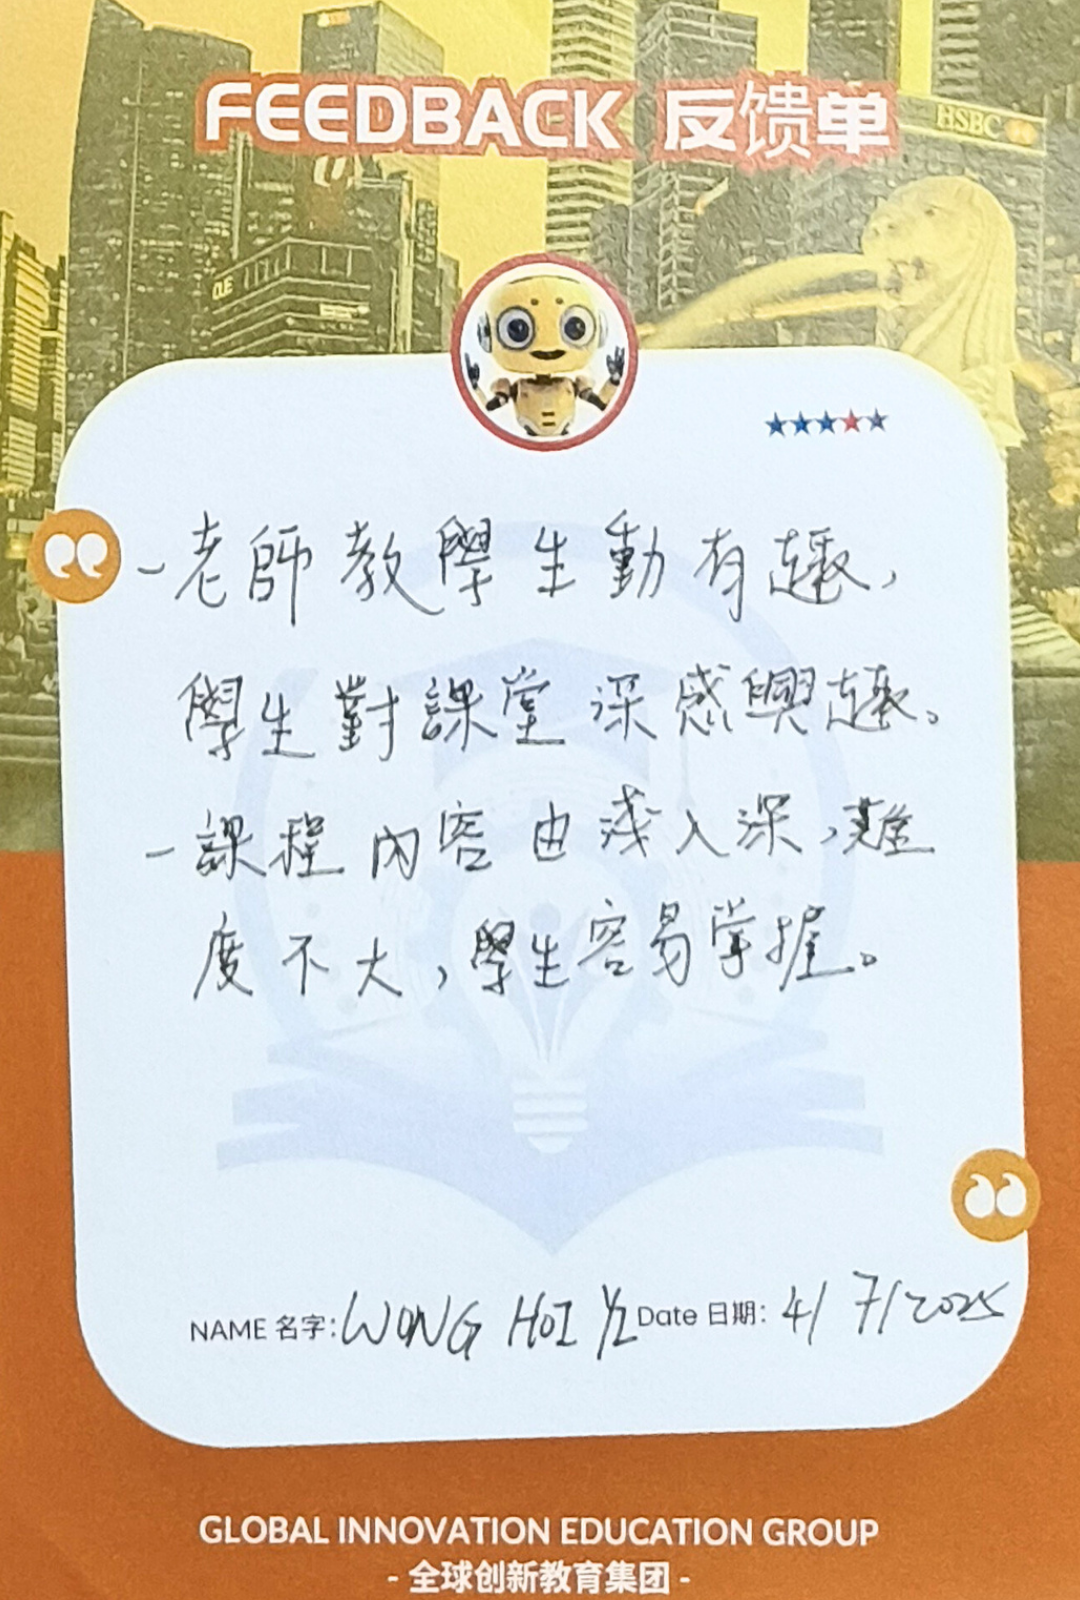 FEEDBACK 反馈单
HSBC
OUE
- 老師教學生動有趣,
學生對課堂深感興趣。
- 課程內容由淺入深,難
度不大,學生容易掌握。
NAME 名字: WONG HOI YI Date 日期: 4/7/2025
GLOBAL INNOVATION EDUCATION GROUP
- 全球创新教育集团 -